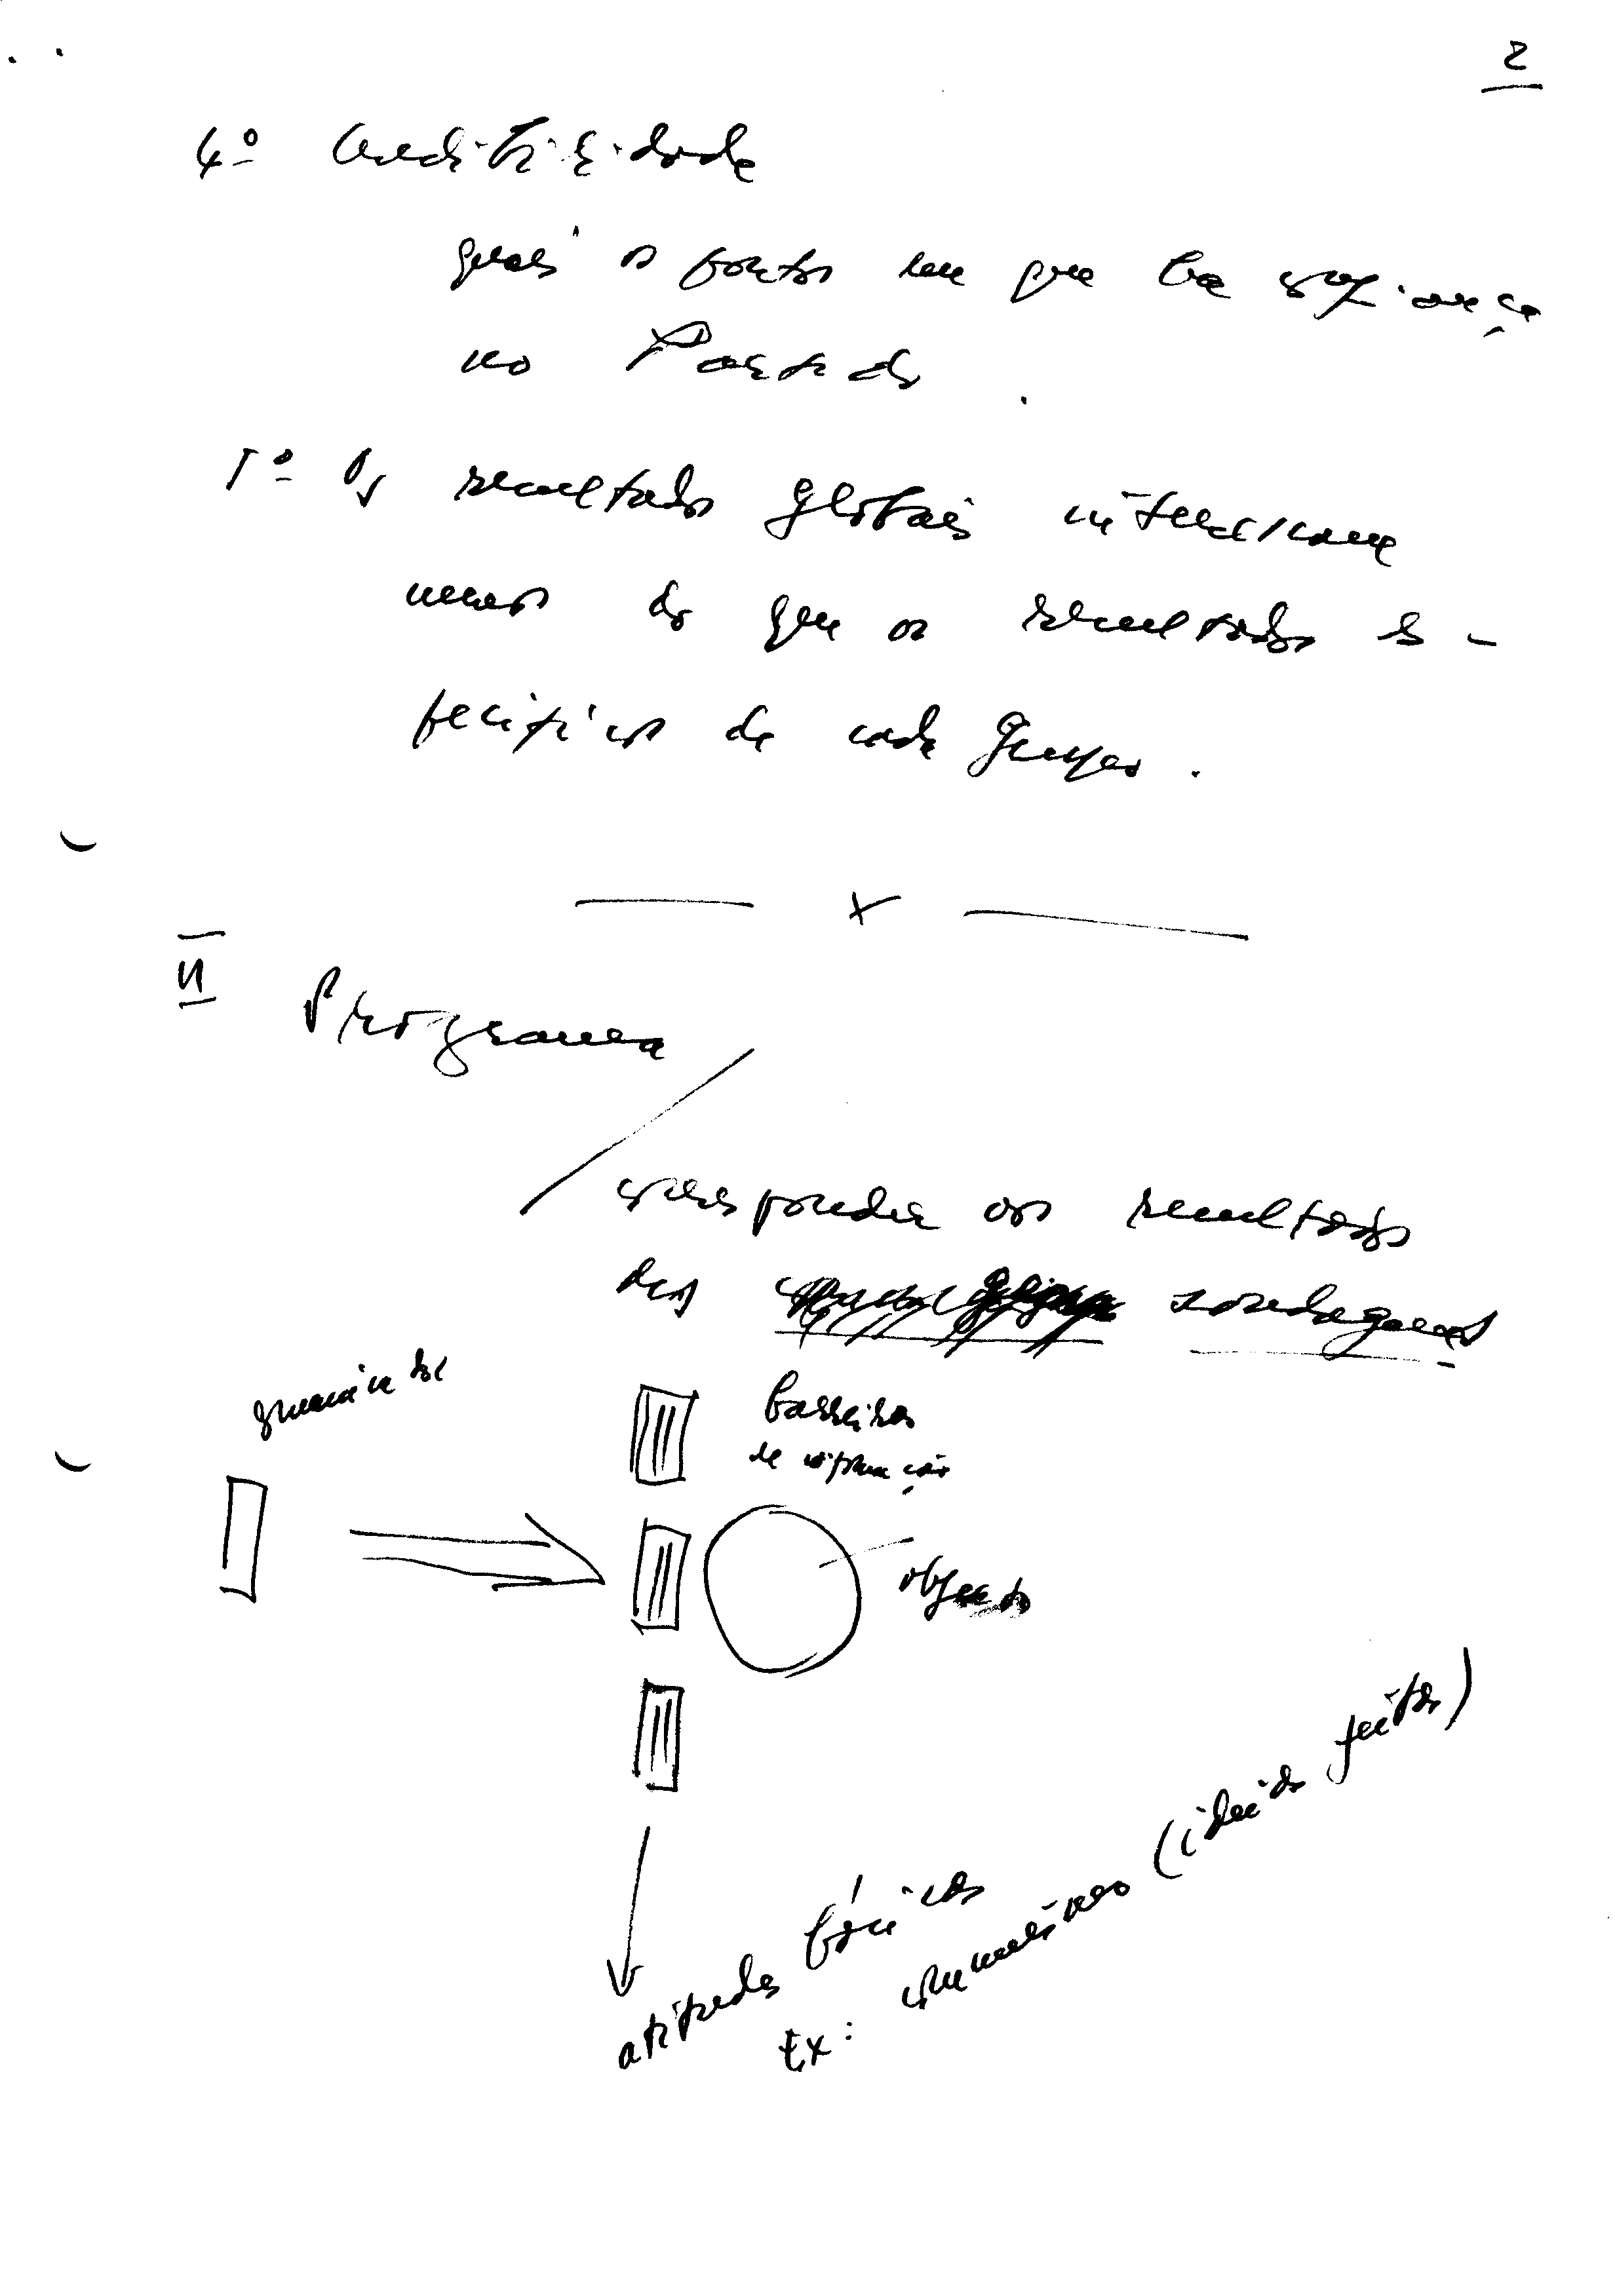 2
4º Credibilidade
quais os pontos em que ha confiança
no Partido
5º Os resultados globais interessam
menos do que os resultados es-
pecificos de cada grupo.
x
II
Programa
corresponder aos resultados
das sondagens
barreiras
de informação
objecto
atitudes básicas
Ex: comunismo (ideias feitas)